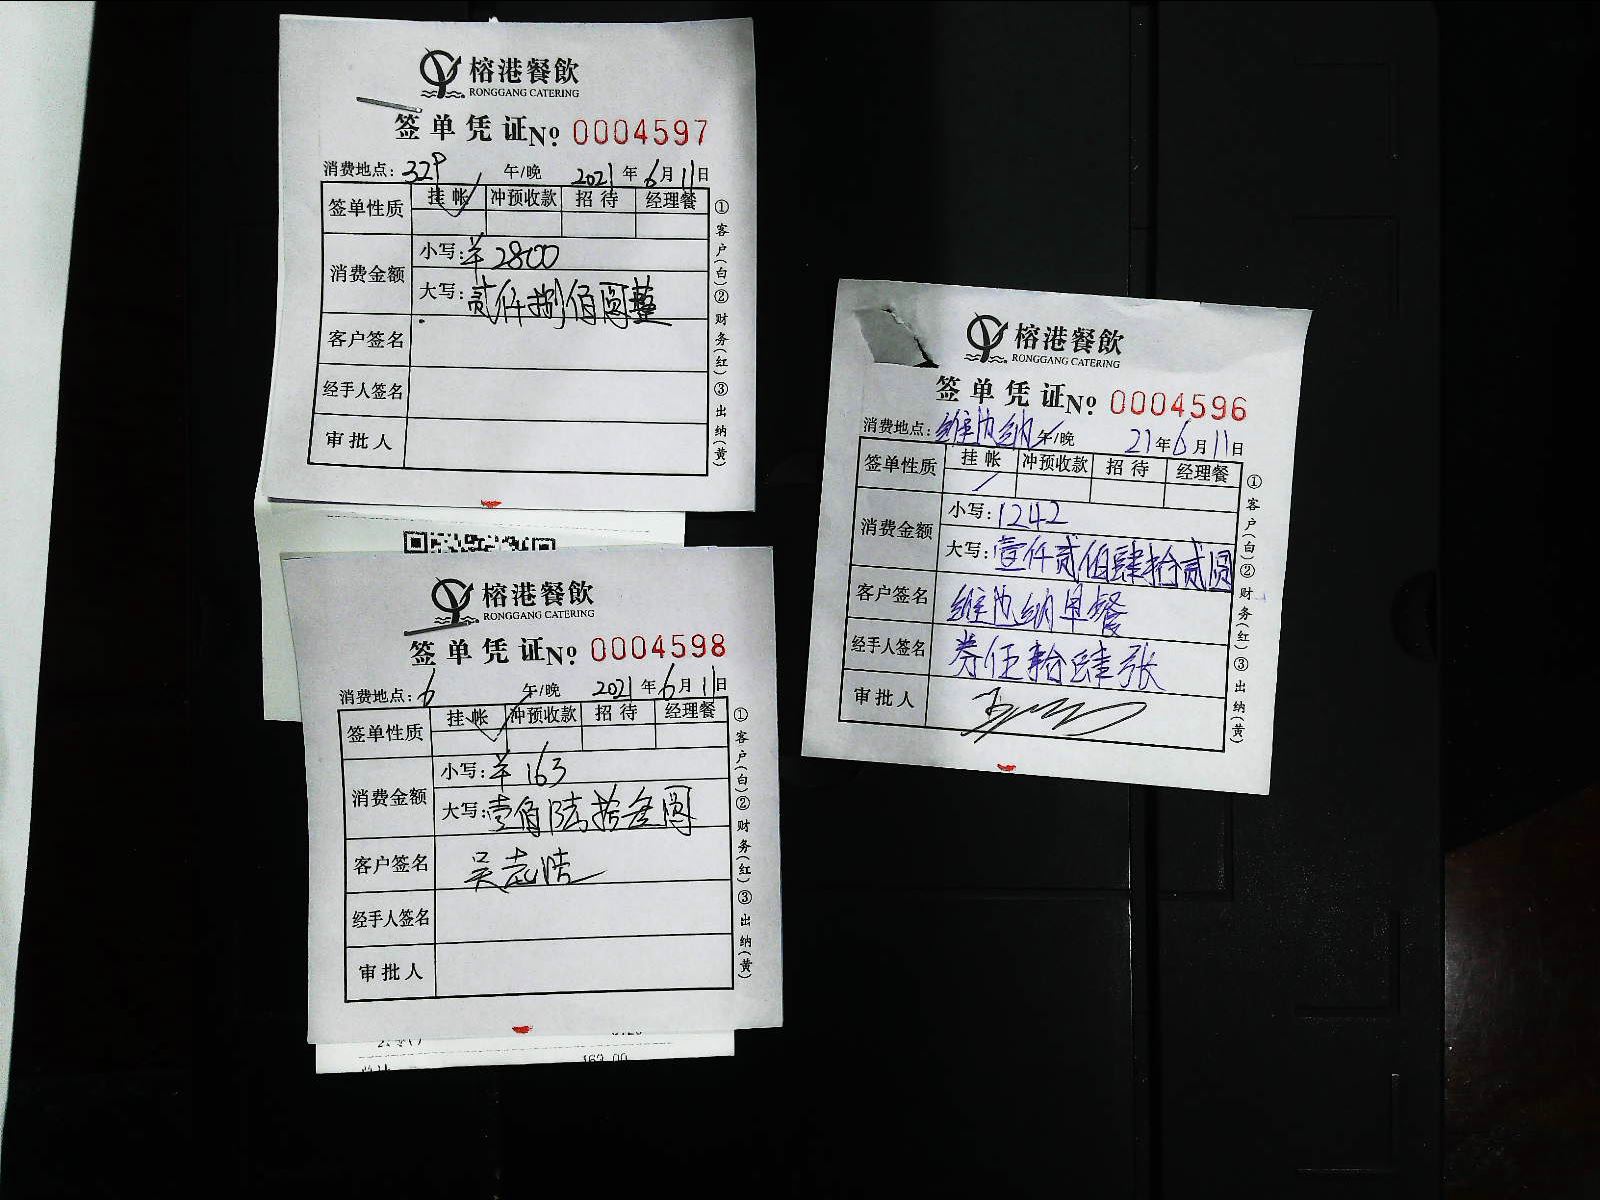 榕港餐飲
RONGGANG CATERING
签单凭证 No 0004597
消费地点: 329 午/晚 2021年6月11日
签单性质 挂帐 冲预收款 招待 经理餐
消费金额 小写: ¥2800
大写: 贰仟捌佰圆整
客户签名
经手人签名
审批人
①客户(白)②财务(红)③出纳(黄)
榕港餐飲
RONGGANG CATERING
签单凭证 No 0004598
消费地点: 6 午/晚 2021年6月11日
签单性质 挂帐 冲预收款 招待 经理餐
消费金额 小写: ¥163
大写: 壹佰陆拾叁圆
客户签名 吴志浩
经手人签名
审批人
①客户(白)②财务(红)③出纳(黄)
163.00
榕港餐飲
RONGGANG CATERING
签单凭证 No 0004596
消费地点: 维也纳 午/晚 21年6月11日
签单性质 挂帐 冲预收款 招待 经理餐
消费金额 小写: 1242
大写: 壹仟贰佰肆拾贰圆
客户签名 维也纳早餐
经手人签名 券伍拾肆张
审批人
①客户(白)②财务(红)③出纳(黄)